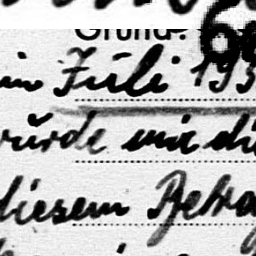 Grund:
im Juli 195
würde mir die
diesem Betrag